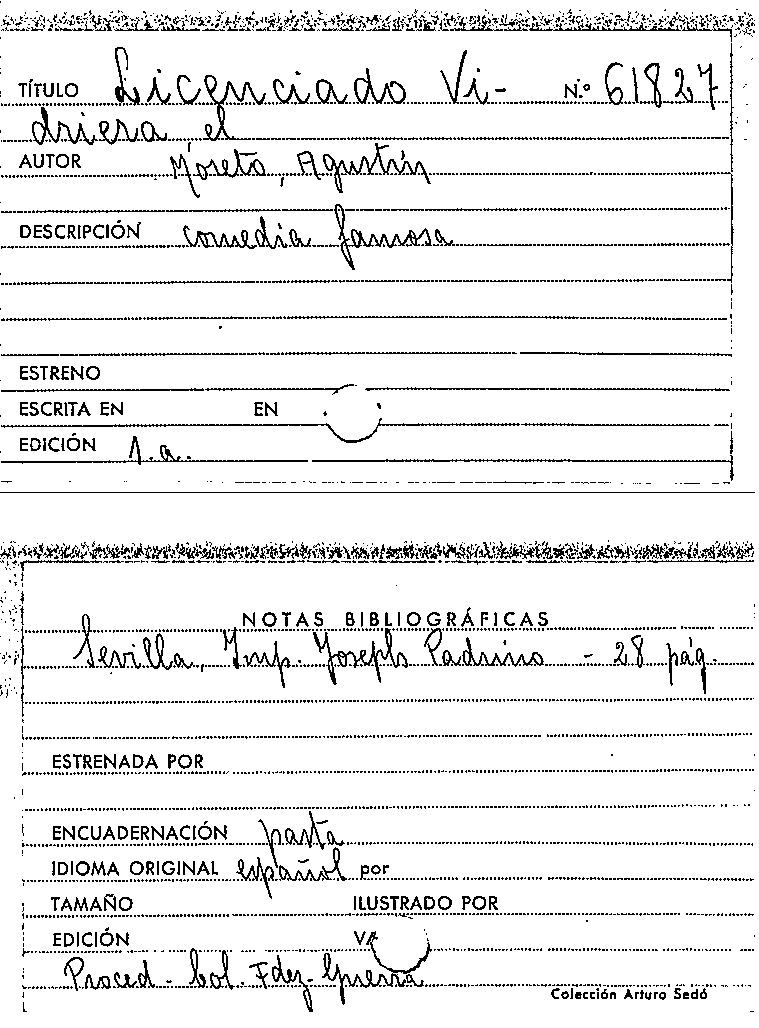 TÍTULO Licenciado Vi- N.º 61827
driera el
AUTOR Moreto, Agustín
DESCRIPCIÓN comedia famosa
ESTRENO
ESCRITA EN EN
EDICIÓN 1.a.
NOTAS BIBLIOGRÁFICAS
Sevilla, Imp. Joseph Padrino - 28 pág.
ESTRENADA POR
ENCUADERNACIÓN pasta
IDIOMA ORIGINAL español por
TAMAÑO ILUSTRADO POR
EDICIÓN
Proced. Col. Fdez-Guerra
Colección Arturo Sedó